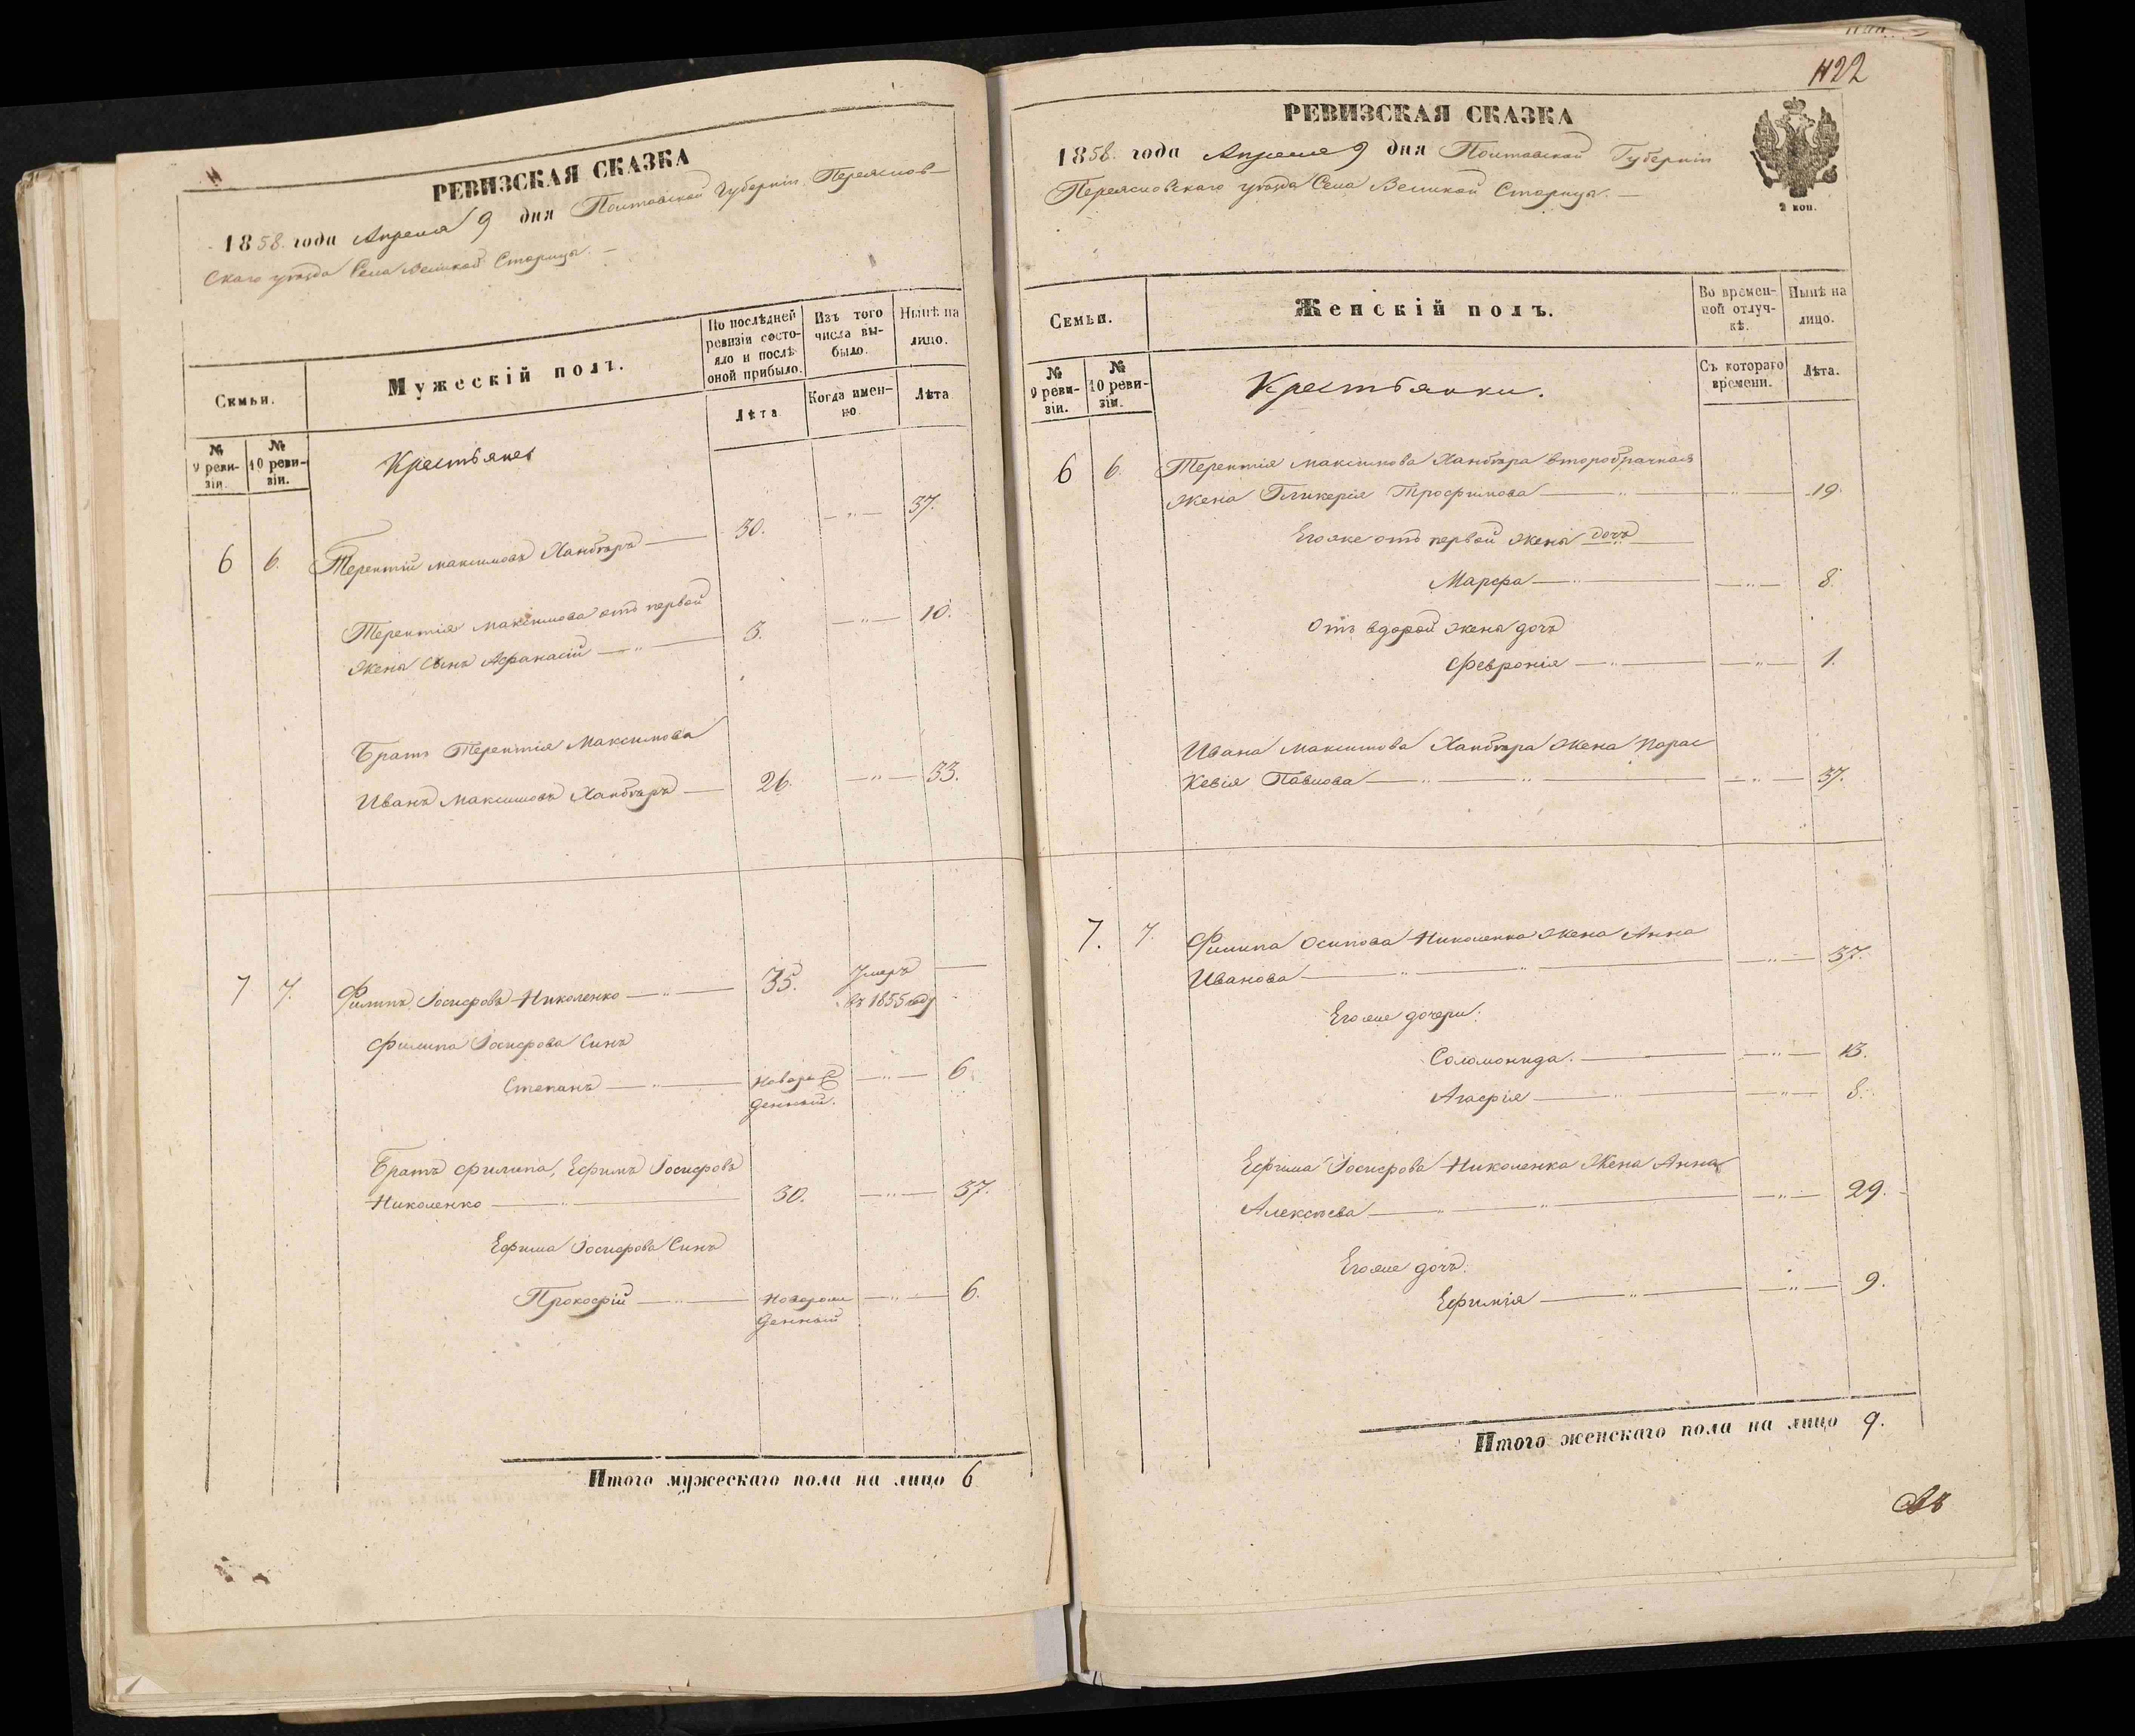 РЕВИЗСКАЯ СКАЗКА
1858 года Апреля 9 дня Полтавской Губерніи Переяслов-
Скаго уѣзда Села Великой Старицы. —
Семьи.
Мужескій полъ.
По послѣдней
ревизіи состо-
яло и послѣ
оной прибыло.
Изъ того
числа вы-
было.
Нынѣ на
лицо.
Лѣта
Когда имен-
но
Лѣта
№
9 реви-
зіи.
№
10 реви-
зіи.
Крестьяне
6 6. Терентій Максимовъ Хандѣръ — 30. — „ — 37.
Терентія Максимова отъ первой
жены Сынъ Афанасій — „ — 3. — „ — 10.
Братъ Терентія Максимова
Иванъ Максимовъ Хандѣръ — 26. — „ — 33.
7 7. Филипъ Іосифовъ Николенко — „ — 35. Умеръ —
въ 1855 году
Филипа Іосифова Синъ
Степанъ — „ — Новорож — „ — 6.
денный.
Братъ Филипа, Ефимъ Іосифовъ
Николенко — „ — 30. — „ — 37.
Ефима Іосифова Синъ
Прокофій — „ — Новорож — „ — 6.
денный
Итого мужескаго пола на лицо 6
422
РЕВИЗСКАЯ СКАЗКА
2 коп.
1858. года Апреля 9 дня Полтавской Губерніи
Переясловскаго уѣзда Села Великой Старицы. —
Семьи.
Женскій полъ.
Во времен-
ной отлуч-
кѣ.
Нынѣ на
лицо.
№
9 реви-
зіи.
№
10 реви-
зіи.
Крестьянки.
Съ котораго
времени.
Лѣта.
6 6. Терентія Максимова Хандѣра второбрачная
жена Гликерія Трофимова — „ — „ — 19.
Его же отъ первой жены дочъ
Марфа — „ — „ — 8.
Отъ вдорой жены дочъ
Февронія — „ — „ — 1.
Ивана Максимова Хандѣра жена Парас
Кевія Павлова — „ — „ — „ — 37.
7. 7. Филипа Осипова Николенка жена Анна
Иванова — „ — „ — „ — 37.
Его же дочери:
Соломонида. — „ — 13.
Агафія — „ — „ — 8.
Ефима Іосифова Николенка Жена Анна
Алексѣева — „ — „ — „ — 29.
Его же дочъ:
Ефимія — „ — „ — 9.
Итого женскаго пола на лицо 9.